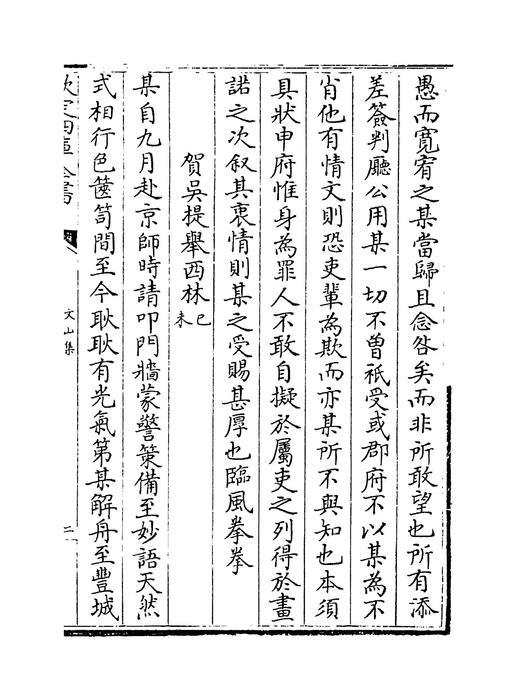 愚而寛宥之某當歸且念咎矣而非所敢望也所有添
差簽判廳公用某一切不曽祇受或郡府不以某為不
肖他有情文則恐吏輩為欺而亦某所不與知也本須
具狀申府惟身為罪人不敢自擬於屬吏之列得於畫
諾之次叙其衷情則某之受賜甚厚也臨風拳拳
賀吳提舉西林己未
某自九月赴京師時請叩門牆蒙警策備至妙語天然
式相行色篋笥間至今耿耿有光氣第某解舟至豐城
欽定四庫全書
文山集
二